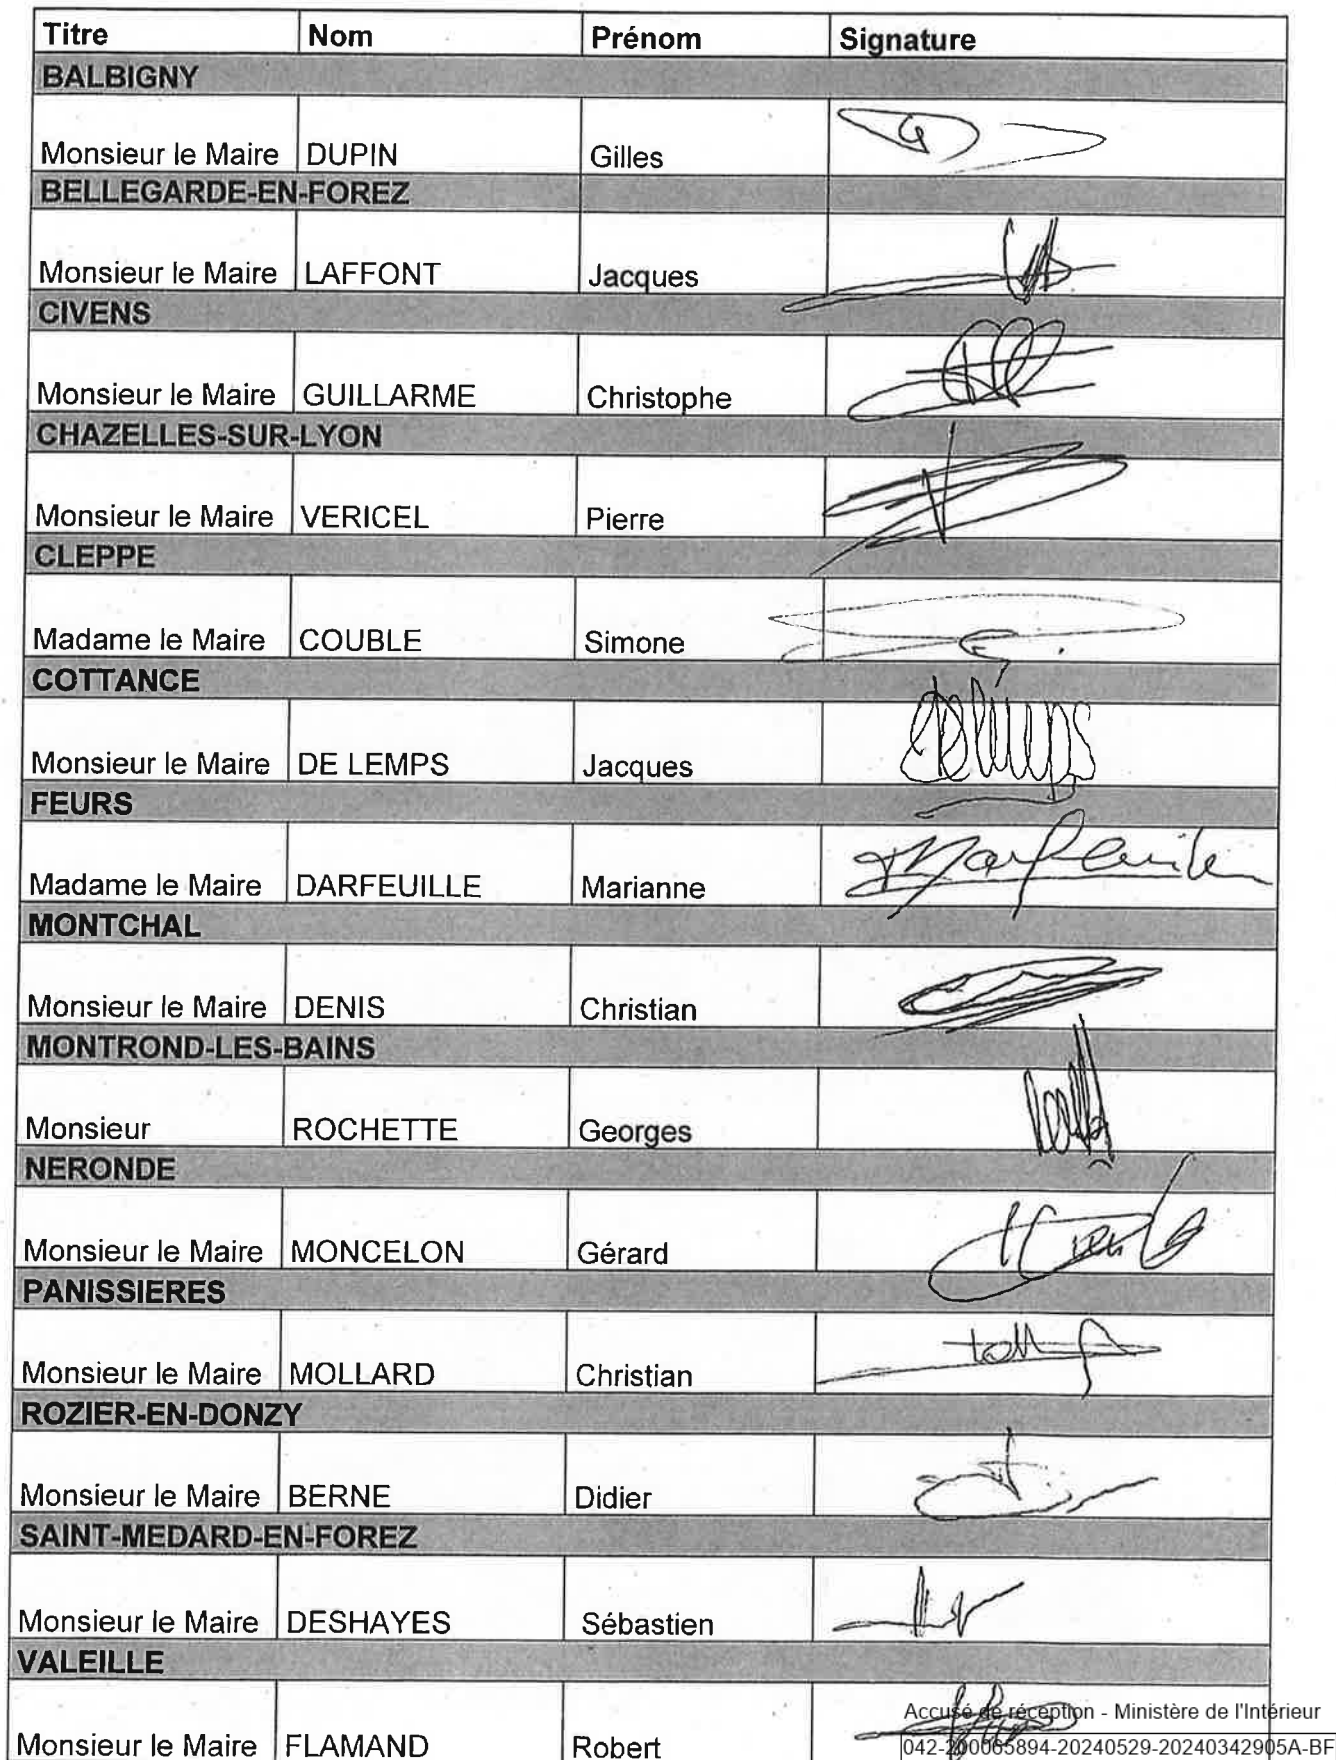 Titre Nom Prénom Signature
BALBIGNY
Monsieur le Maire DUPIN Gilles
BELLEGARDE-EN-FOREZ
Monsieur le Maire LAFFONT Jacques
CIVENS
Monsieur le Maire GUILLARME Christophe
CHAZELLES-SUR-LYON
Monsieur le Maire VERICEL Pierre
CLEPPE
Madame le Maire COUBLE Simone
COTTANCE
Monsieur le Maire DE LEMPS Jacques
FEURS
Madame le Maire DARFEUILLE Marianne
MONTCHAL
Monsieur le Maire DENIS Christian
MONTROND-LES-BAINS
Monsieur ROCHETTE Georges
NERONDE
Monsieur le Maire MONCELON Gérard
PANISSIERES
Monsieur le Maire MOLLARD Christian
ROZIER-EN-DONZY
Monsieur le Maire BERNE Didier
SAINT-MEDARD-EN-FOREZ
Monsieur le Maire DESHAYES Sébastien
VALEILLE
Accusé de réception - Ministère de l'Intérieur
Monsieur le Maire FLAMAND Robert
042-200065894-20240529-20240342905A-BF